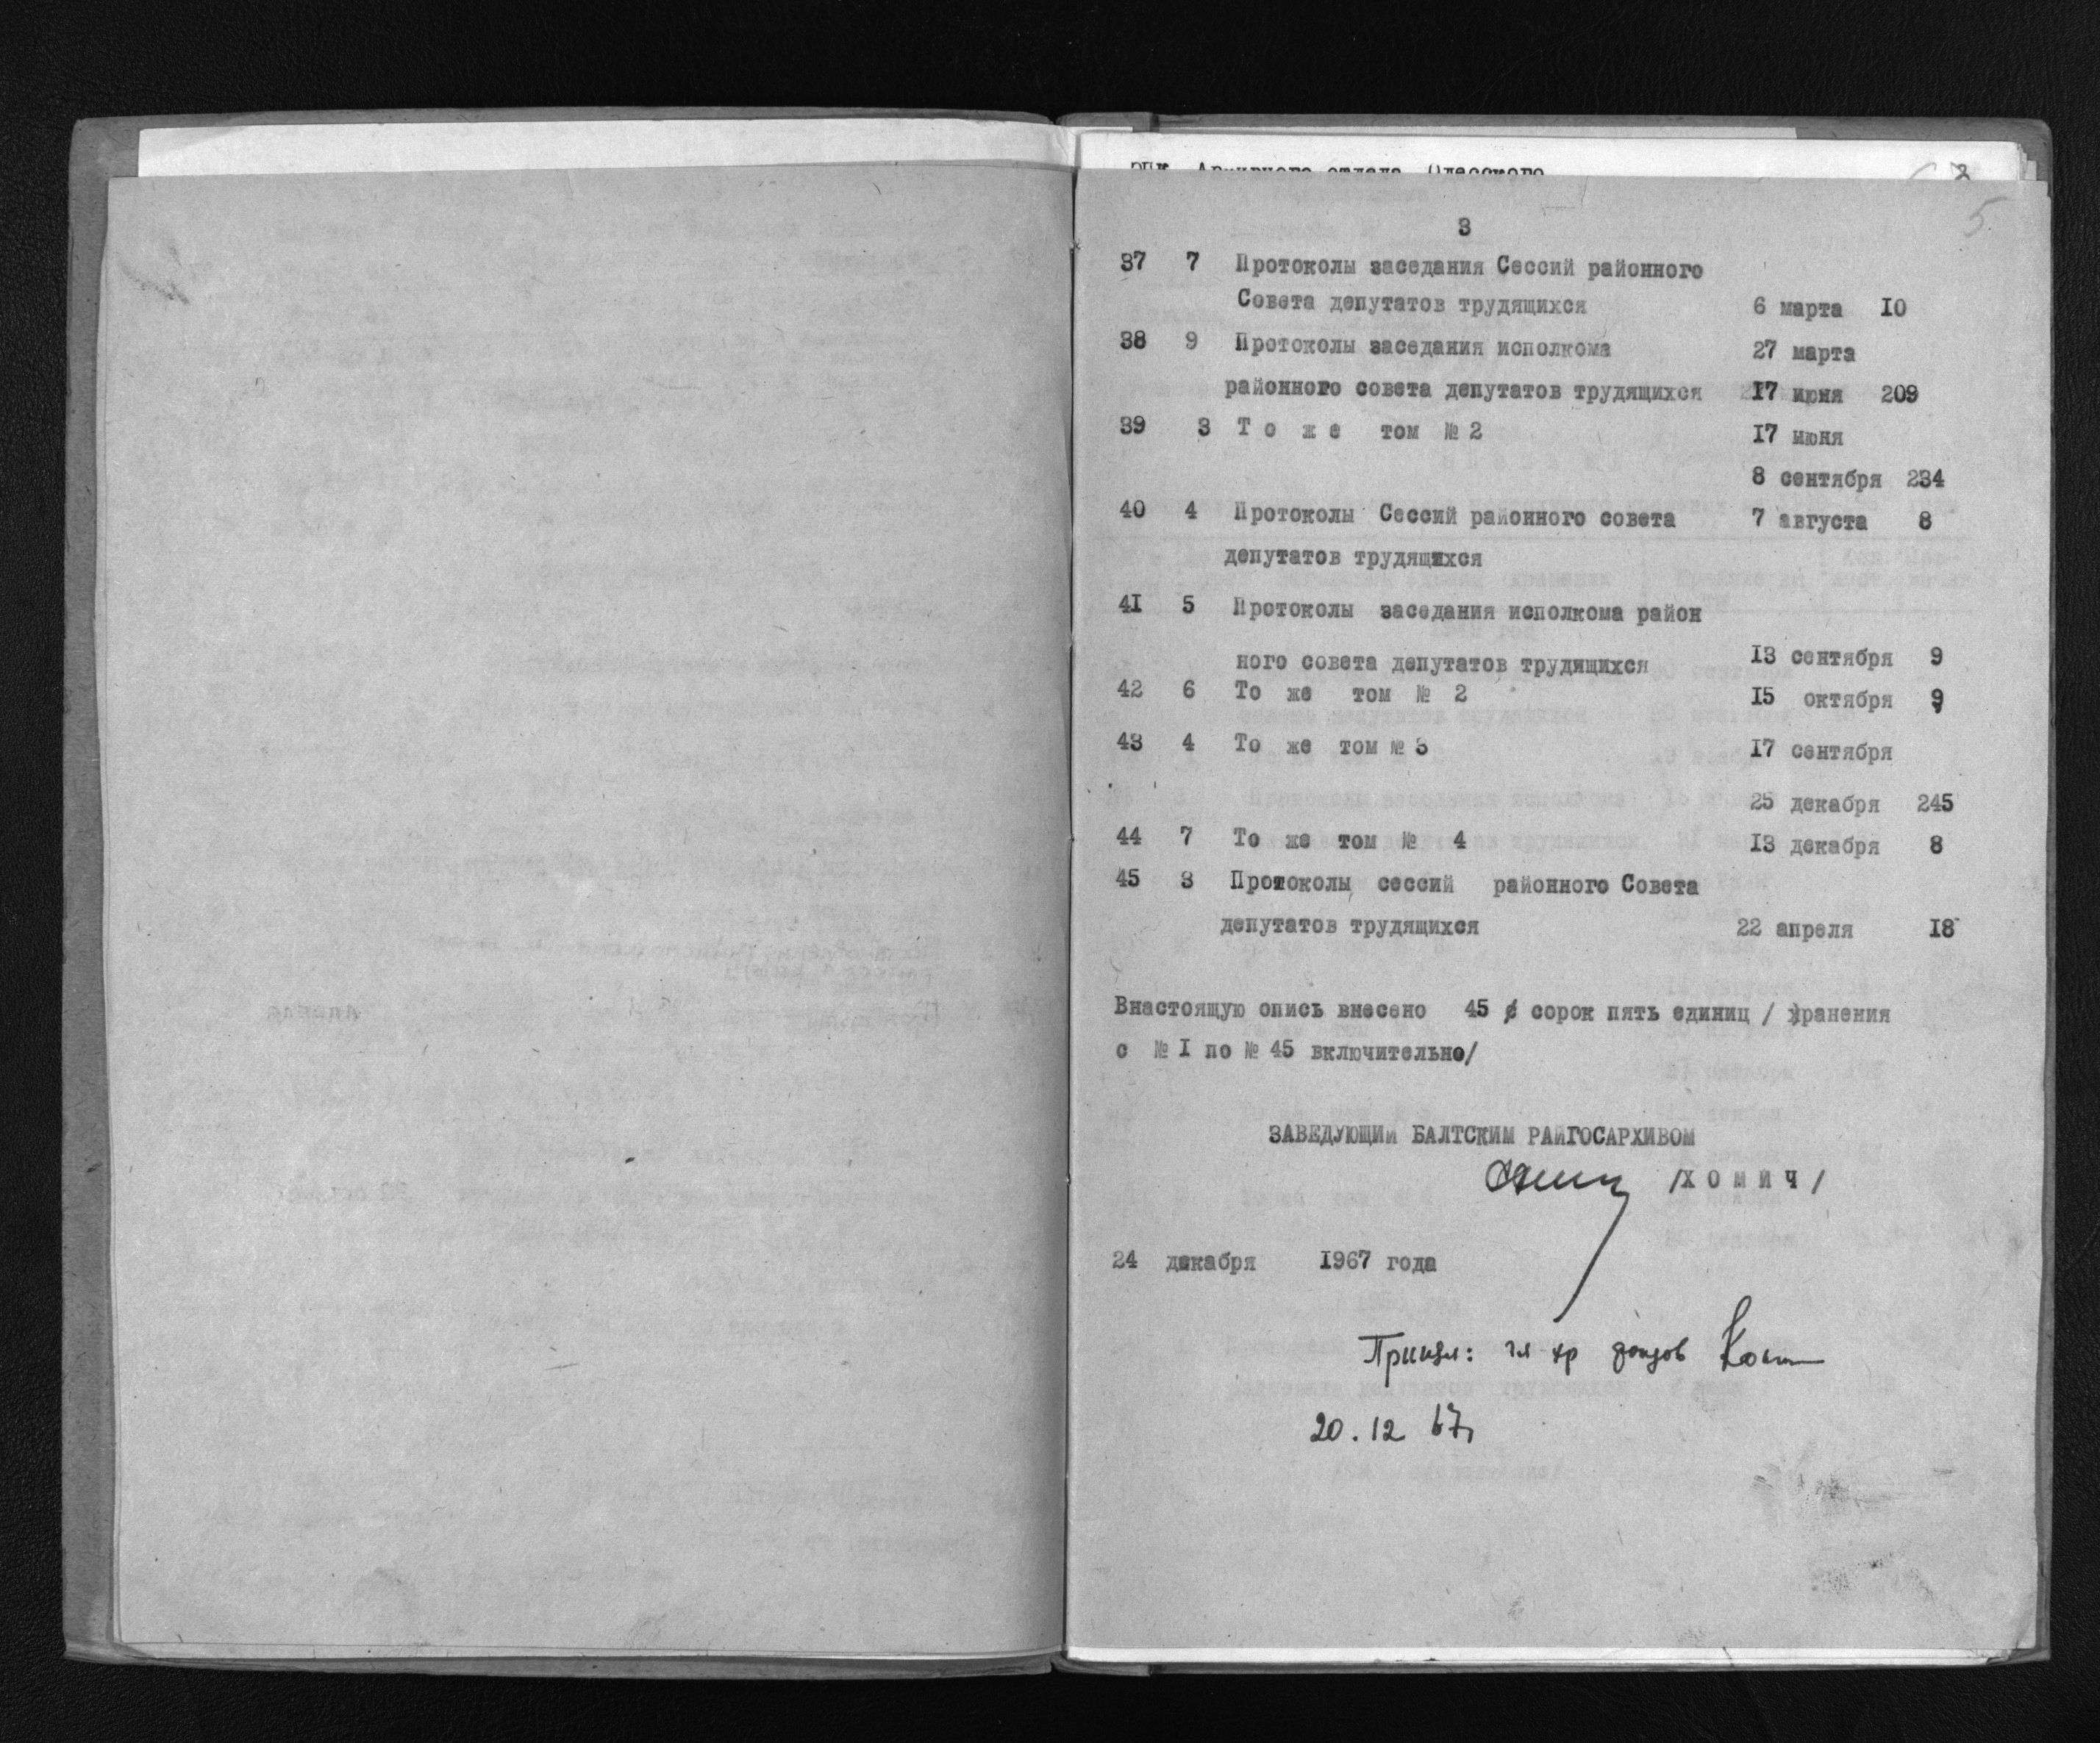 ЭПК Архивного отдела Одесского
3
5.
3
37 7 Протоколы заседания Сессий районного
Совета депутатов трудящихся 6 марта 10
38 9 Протоколы заседания исполкома 27 марта
районного совета депутатов трудящихся 17 июня 209
39 3 Т о ж е том № 2 17 июня
8 сентября 234
40 4 Протоколы Сессий районного совета 7 августа 8
депутатов трудящихся
41 5 Протоколы заседания исполкома район
ного совета депутатов трудящихся 13 сентября 9
42 6 То же том № 2 15 октября 9
43 4 То же том № 3 17 сентября
25 декабря 245
44 7 То же том № 4 13 декабря 8
45 3 Протоколы сессий районного Совета
депутатов трудящихся 22 апреля 18
Внастоящую опись внесено 45 / сорок пять единиц / хранения
с № I по № 45 включительно/
ЗАВЕДУЮЩИЙ БАЛТСКИМ РАЙГОСАРХИВОМ
/Х О М И Ч /
24 декабря 1967 года
Принял: гл хр фондов
20.12 67г